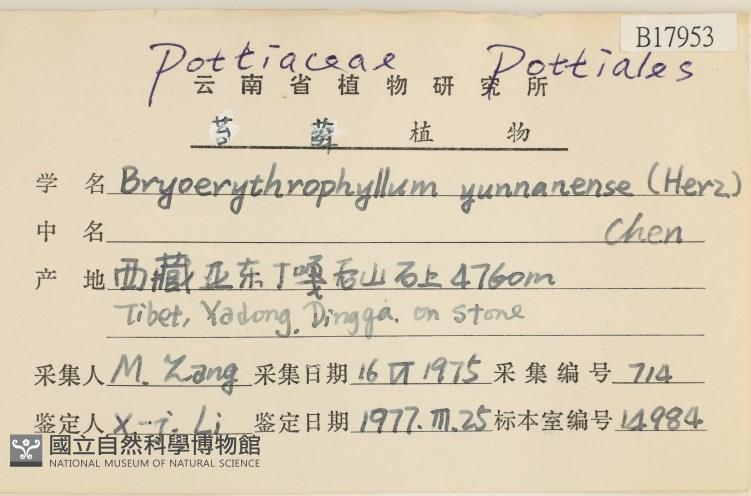 B17953
Pottiaceae Pottiales
云南省植物研究所
苔藓植物
学名 Bryoerythrophyllum yunnanense (Herz)
中名 Chen
产地 西藏亚东丁嘎 山石上 4760m
Tibet, Yadong. Dingga. on stone
采集人 M. Zang 采集日期 16 VI 1975 采集编号 714
鉴定人 X-j. Li 鉴定日期 1977.III.25 标本室编号 14984
國立自然科學博物館
NATIONAL MUSEUM OF NATURAL SCIENCE